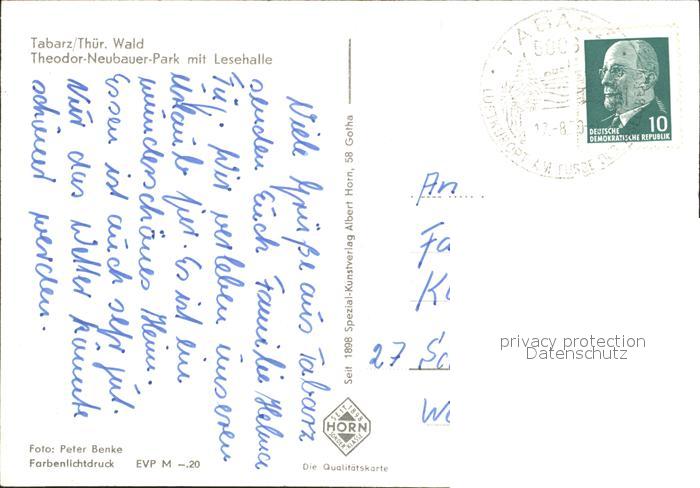 Tabarz/Thür. Wald
Theodor-Neubauer-Park mit Lesehalle
Viele Grüße aus Tabarz
senden Euch Familie
Wir verleben unseren
Urlaub hier. Es ist ein
wunderschönes Heim.
Essen ist auch sehr gut.
Nur das Wetter könnte
schöner werden.
Foto: Peter Benke
Farbenlichtdruck EVP M –.20
Seit 1898 Spezial-Kunstverlag Albert Horn, 58 Gotha
SEIT 1898
HORN
SONDERKLASSE
Die Qualitätskarte
TABARZ
LUFTKURORT AM FUSSE DE
DEUTSCHE
DEMOKRATISCHE REPUBLIK
10
An
Fa
27
privacy protection
Datenschutz